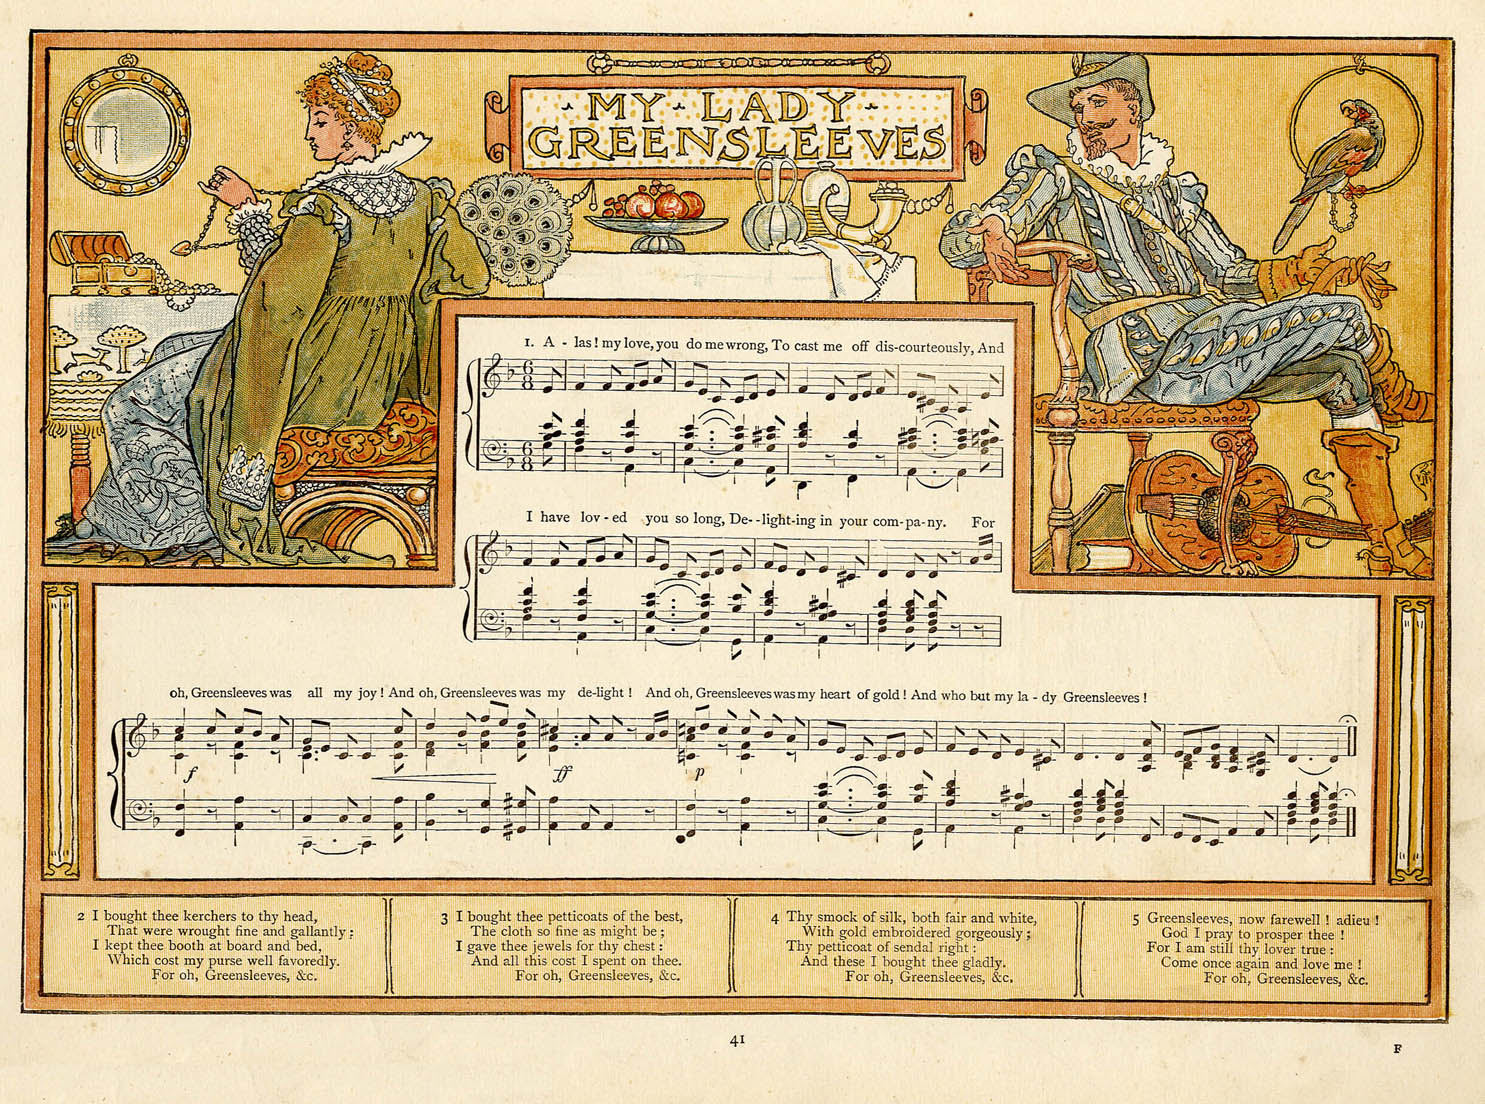 MY LADY
GREENSLEEVES
1. A - las! my love, you do me wrong, To cast me off dis-courteously, And
I have lov-ed you so long, De--light-ing in your com-pa-ny. For
oh, Greensleeves was all my joy! And oh, Greensleeves was my de-light! And oh, Greensleeves was my heart of gold! And who but my la-dy Greensleeves!
f ff p
2 I bought thee kerchers to thy head,
That were wrought fine and gallantly;
I kept thee booth at board and bed,
Which cost my purse well favoredly.
For oh, Greensleeves, &c.
3 I bought thee petticoats of the best,
The cloth so fine as might be;
I gave thee jewels for thy chest:
And all this cost I spent on thee.
For oh, Greensleeves, &c.
4 Thy smock of silk, both fair and white,
With gold embroidered gorgeously;
Thy petticoat of sendal right:
And these I bought thee gladly.
For oh, Greensleeves, &c.
5 Greensleeves, now farewell! adieu!
God I pray to prosper thee!
For I am still thy lover true:
Come once again and love me!
For oh, Greensleeves, &c.
41
F